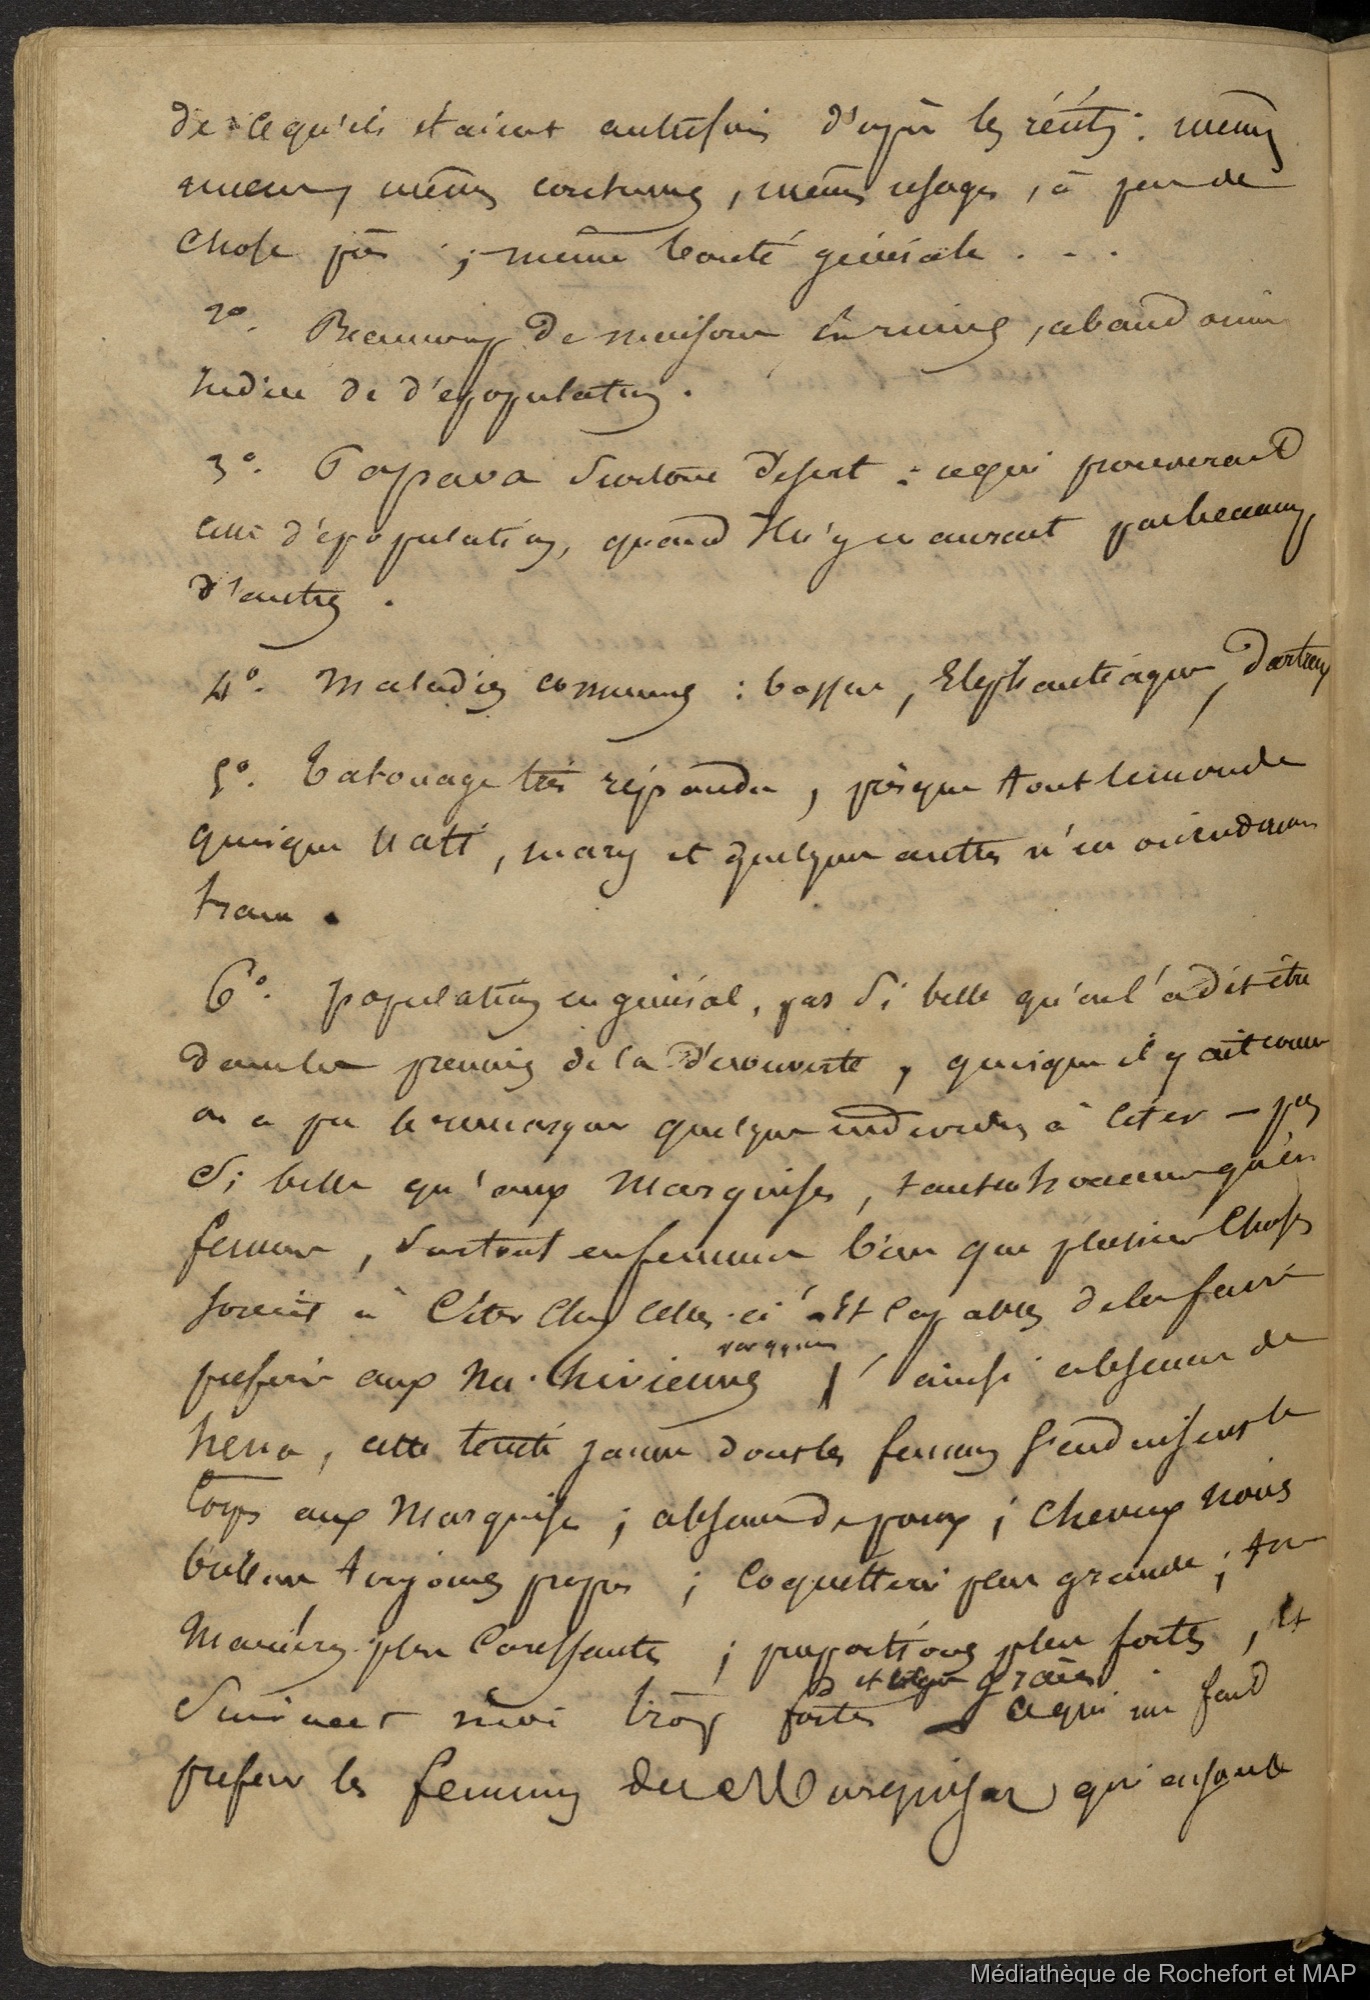 de ce qu'ils étaient autrefois d'après les récits : mêmes
mœurs, mêmes coutumes, mêmes usages, à peu de
chose près ; même beauté générale . . .
2°. Beaucoup de maisons en ruines, abandonnées
indice de d'épopulation.
3°. Papava surtout désert : ce qui prouverait
cette d'épopulation, quand il n'y en aurait pas beaucoup
d'autres.
4°. Maladies communes : bosses, Elephantiaques, dartres
5°. Tatouage très répandu, presque tout le monde
quoique Nati, mary et quelques autres n'en
6°. population en général, pas si belle qu'on l'a dit être
dans les premiers de la d'écouverte, quoique il y ait comme
on a pu le remarquer quelques individus à citer — pas
si belle qu'aux Marquises, tant en hommes qu'en
femmes, surtout en femmes bien que plusieurs choses
soient à citer chez celles-ci et capables de les faire
préférer aux Nu-hiviennes ainsi absence de
hena, cette teinte jaune dont les femmes s'enduisent le
corps aux Marquises ; absence de poux ; cheveux noirs
brillans, toujours propres ; coquetterie plus grande ;
manières plus caressantes ; proportions plus fortes, et
souvent même trop fortes et trop grasses ce qui me fait
préférer les femmes des Marquises qui ensemble
Médiathèque de Rochefort et MAP